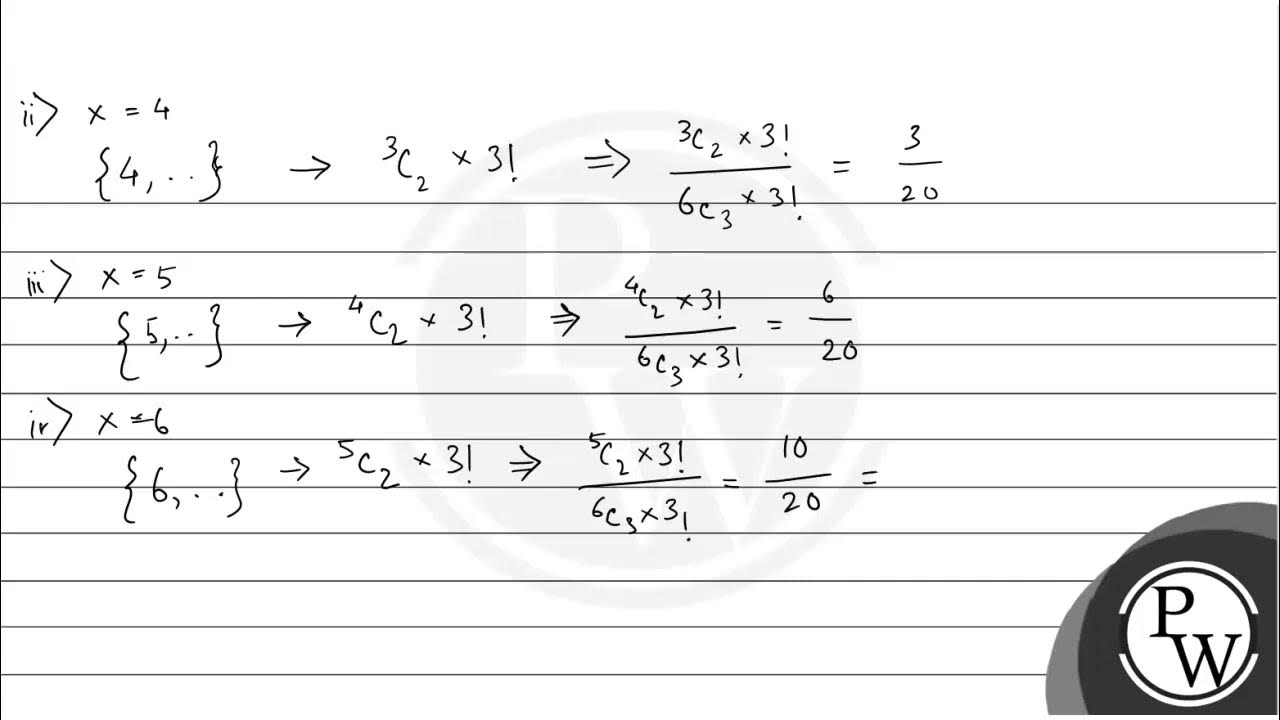 ii) x = 4
{4, ..} → ³C₂ × 3! ⇒ ³C₂ × 3! / 6C₃ × 3! = 3/20
iii) x = 5
{5, ..} → ⁴C₂ × 3! ⇒ ⁴C₂ × 3! / ⁶C₃ × 3! = 6/20
iv) x = 6
{6, ..} → ⁵C₂ × 3! ⇒ ⁵C₂ × 3! / ⁶C₃ × 3! = 10/20 =
P
W